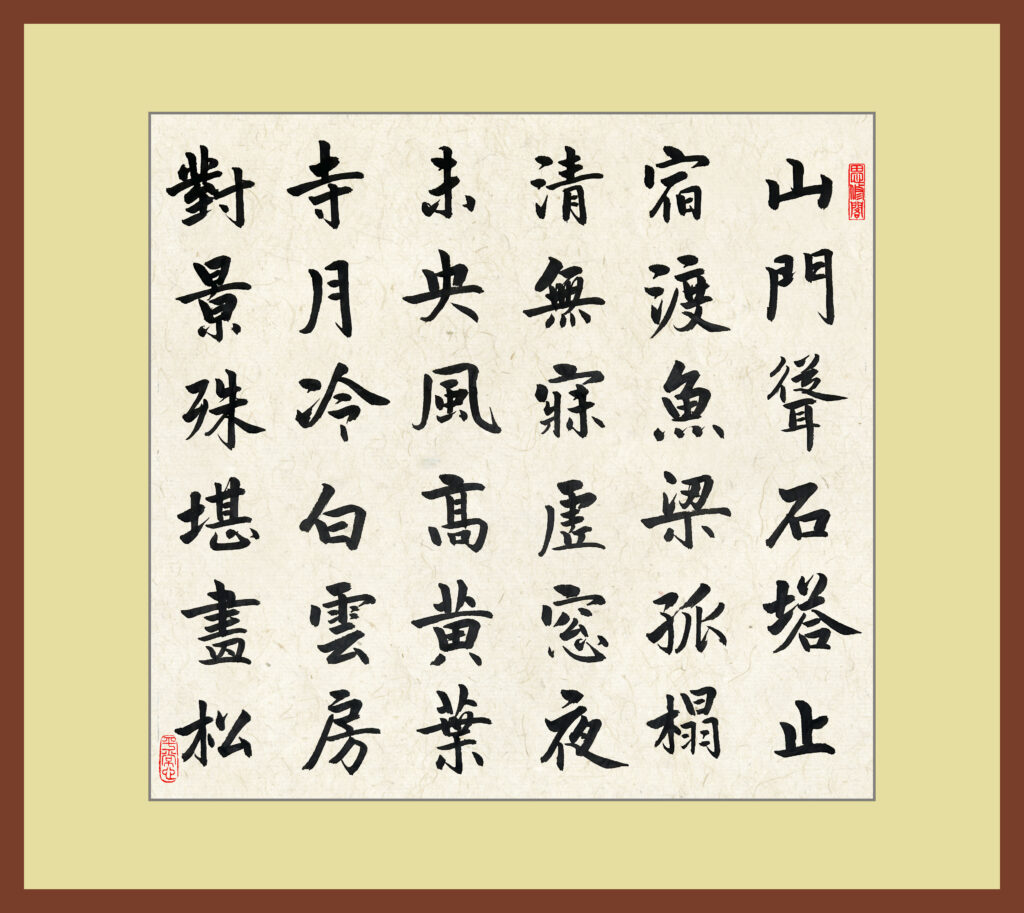 思修閣
山門聳石塔止
宿渡魚梁孤榻
清無寐虛窓夜
未央風髙黄葉
寺月冷白雲房
對景殊堪畫松
平常心